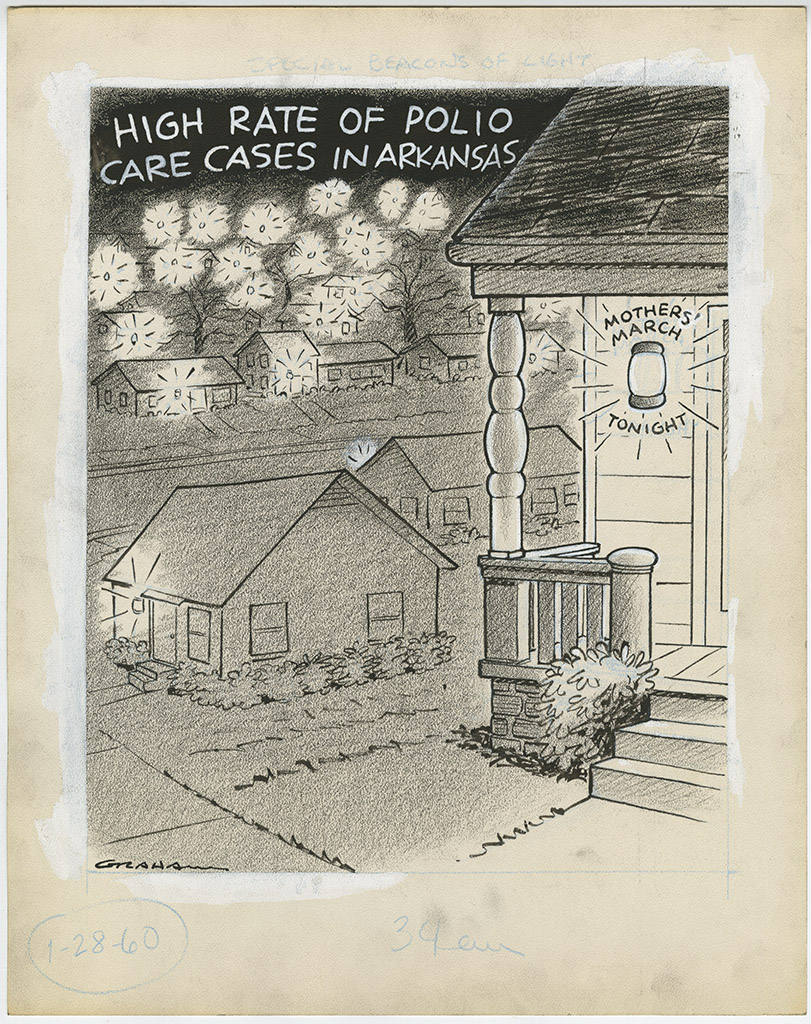 SPECIAL BEACONS OF LIGHT
HIGH RATE OF POLIO
CARE CASES IN ARKANSAS
MOTHERS'
MARCH
TONIGHT
GRAHAM
1-28-60